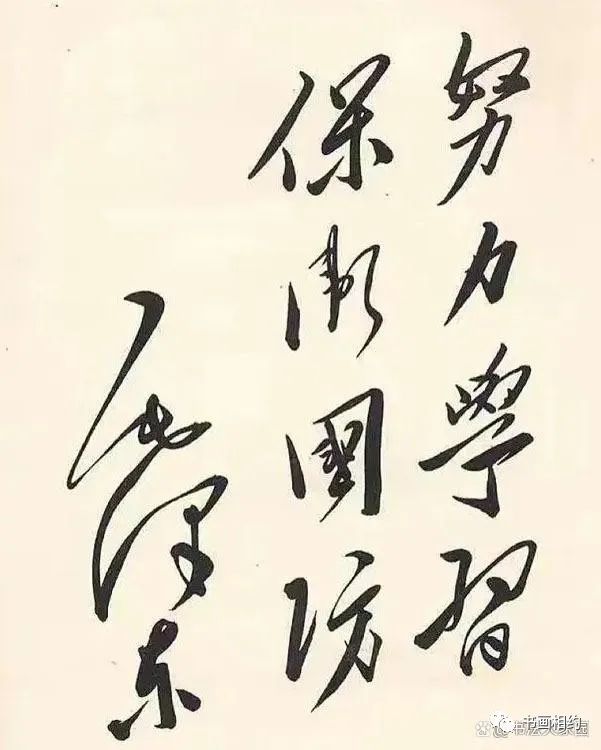 努力學習
保衛國防
毛澤东
书画相约